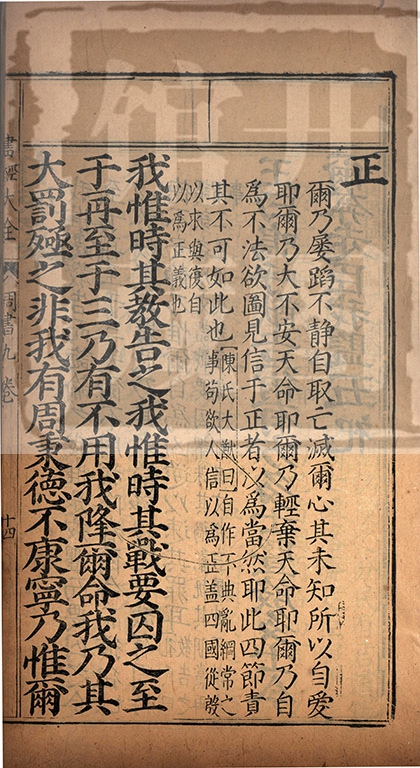 正
爾乃屢蹈不靜自取亡滅爾心其未知所以自愛
耶爾乃大不安天命耶爾乃輕棄天命耶爾乃自
為不法欲圖見信于正者以為當然耶此四節責
其不可如此也
陳氏大猷曰自作不典亂綱常之
事苟欲人信以為正蓋四國從殷
以求興復自
以為正義也
我惟時其教告之我惟時其戰要囚之至
于再至于三乃有不用我降爾命我乃其
大罰殛之非我有周秉德不康寧乃惟爾
書經大全
周書九卷
十四